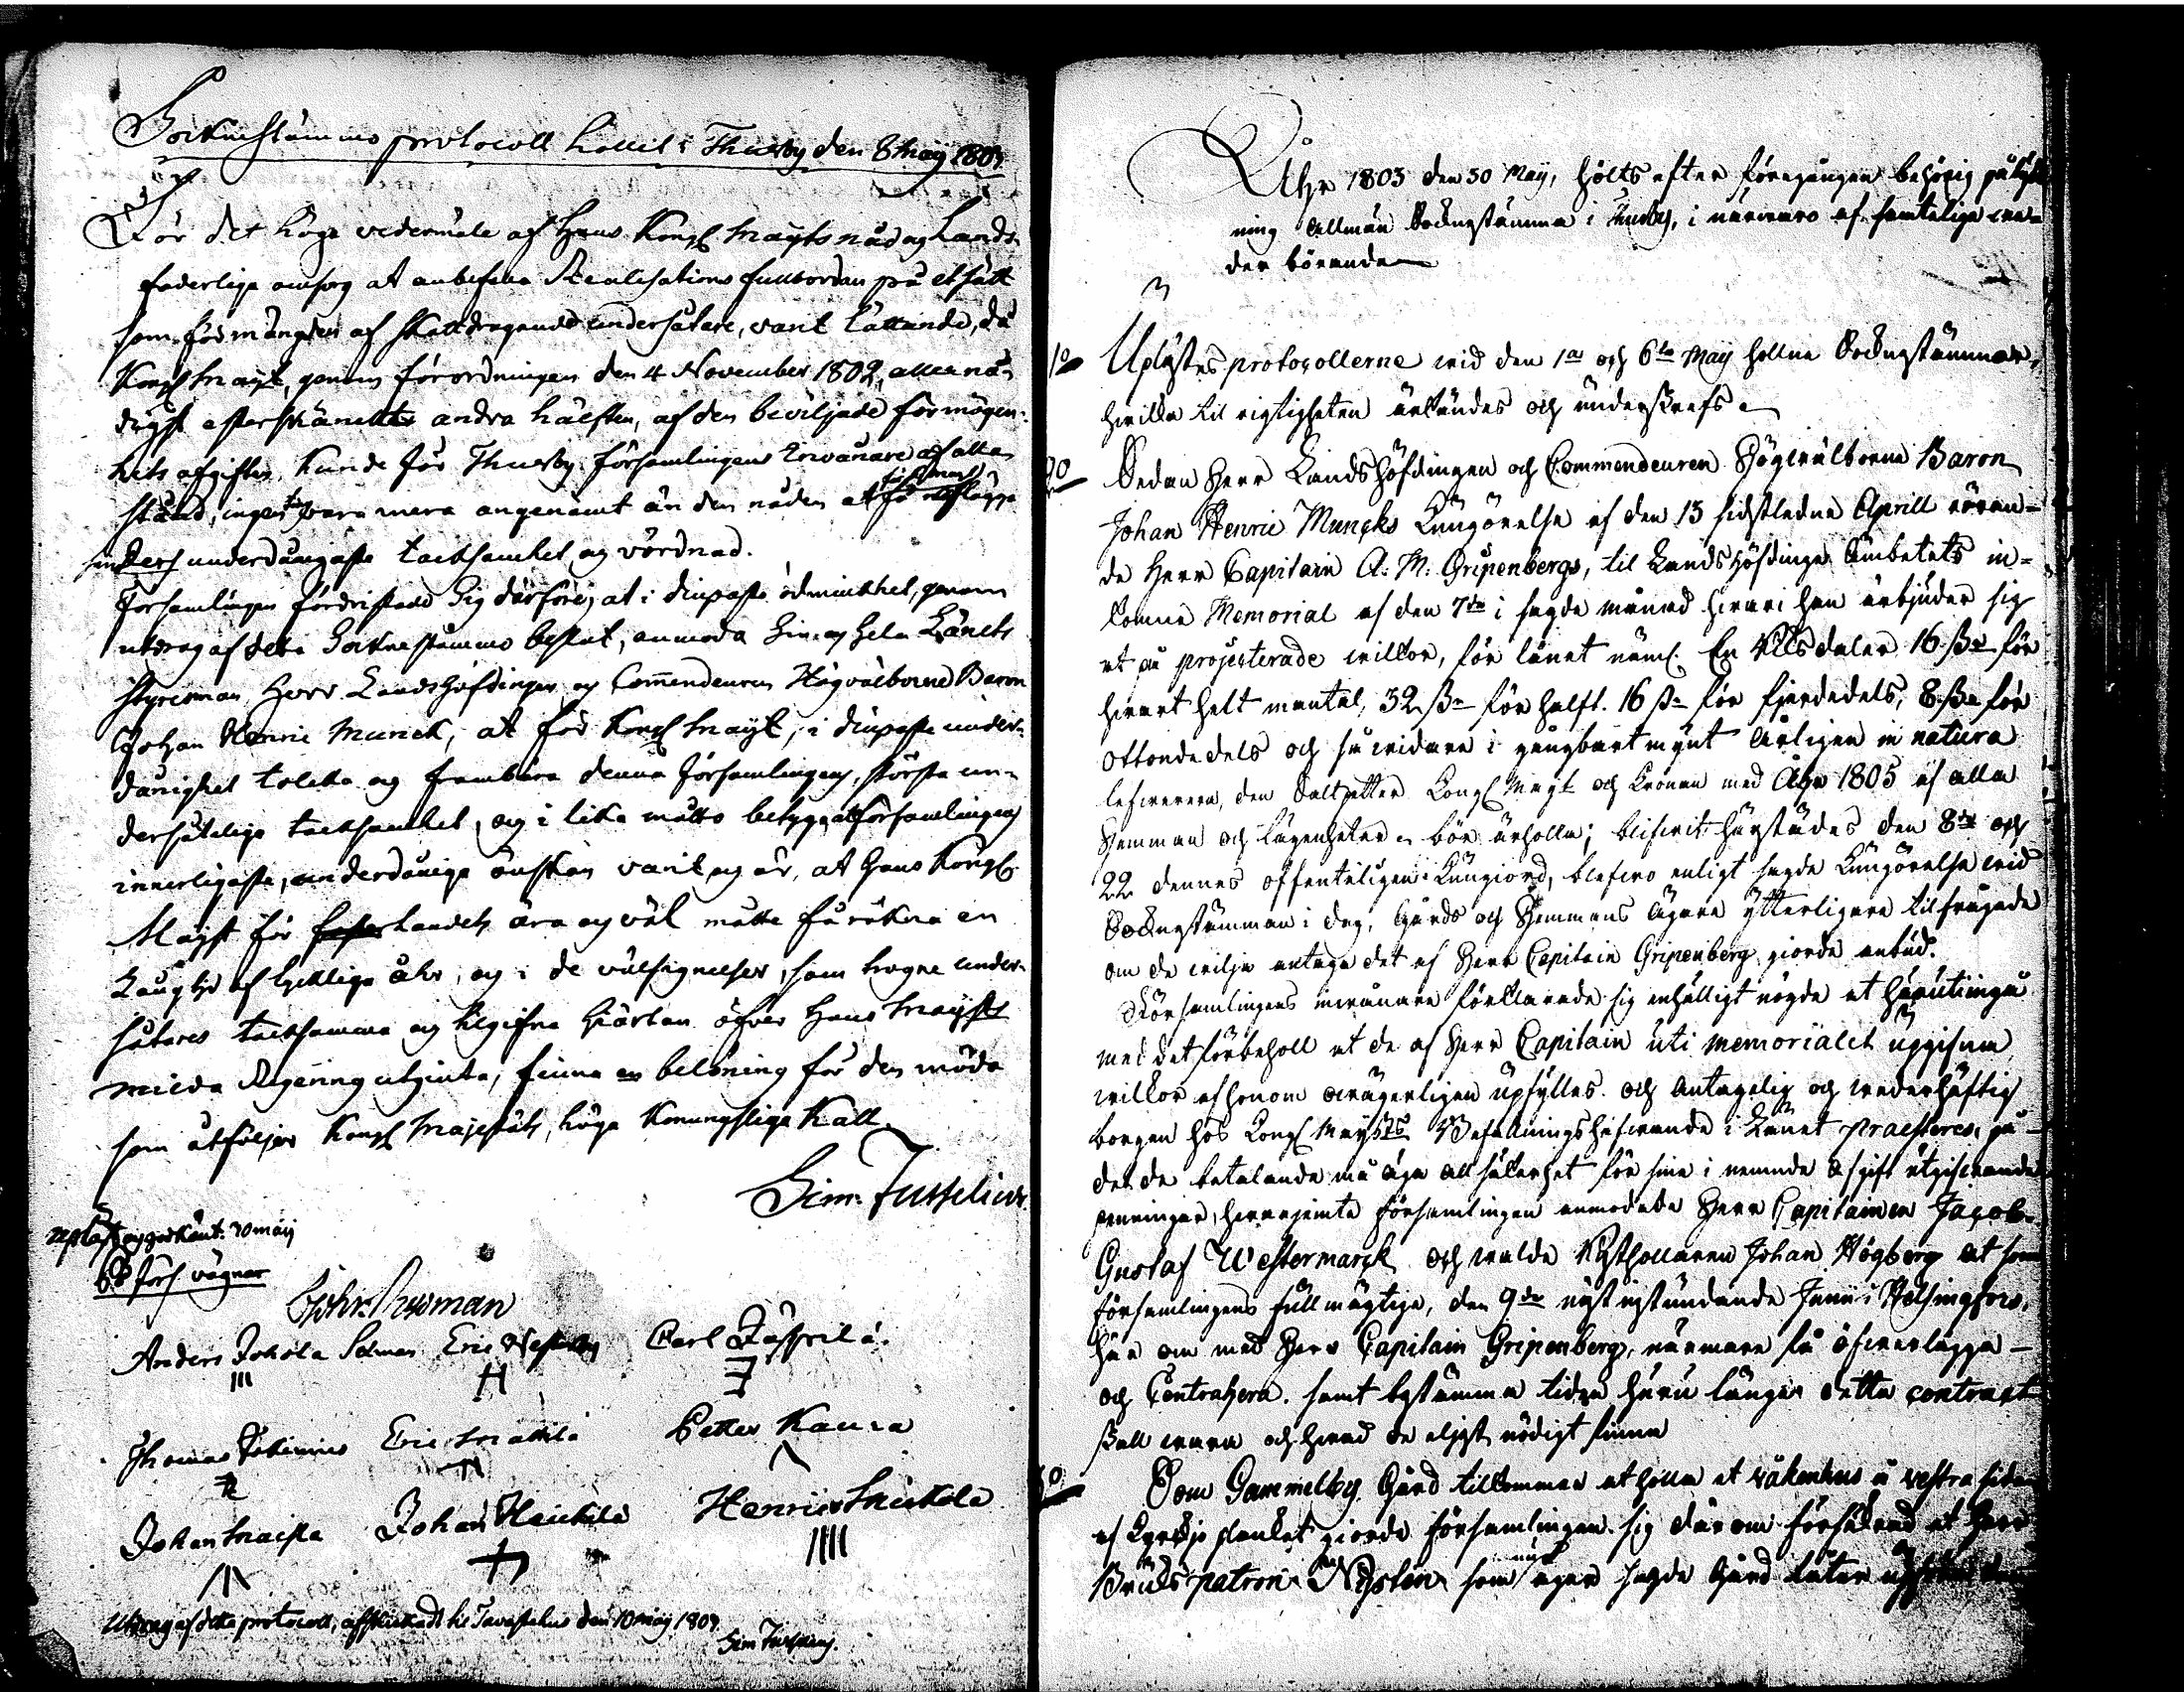 Sockne stämmo protocoll hållit i Thusby den 8 Maij 1803
För det höga vedermäle af Hans Kongl Maijts nåd og Lands-
faderliga omsorg at anbefalla Realisations fullbordan på et sätt
som för mängden af skattdragande undersåtare, varit lättande, då
Kongl Maijt, genom förordningen den 4 November 1802, allernå-
digst efterskänkte andra hälften, af den beviljade förmögen-
hets afgiften, kunde för Thusby församlingens Invånare af alla
stånd, inget vara mera angenämt än den nåden at få
underdånigaste tacksamhet og vördnad.
Församlingen fördristade Sig därföre, at i diupaste ödmiukhet, genom
utdrag af detta Sockne stämmo beslut, anmoda Sin og hela Länets
styresman Herr Landshöfdingen og Commendeuren Högvälborne Baron
Johan Henric Munck, at för Kongl Maijt, i diupaste under-
dånighet tolcka og frambära denna församlingens, största un-
dersåtelige tacksamhet, og i lika måtto betyga, at församlingens
innerligaste, underdåniga önskan varit og är, at Hans Kongl
Maijst för landets ära og väl måtte få räkna en
Längd af lyckliga åhr, og i de välsignelser, som trogne under-
såtares tacksamma og tilgifna hiärtan öfver Hans Maijsts
milda Regering utgiuta, finna en belöning för den möda
som åtföljer Kongl Majestäts, höga Konungsliga Kall.
Sim: Jusselius
upläst og godkänt 30 maij
förs vägnar
Johr. Thurman
Anders Jokela Eric Carl Jusfvila
Thomas Eric Mattila Petter Kaura
Johan Maisa Johan Heickilä Henric Muckola
Utdrag af detta protocoll, afskickadt til Tavastehus den 10 maij 1803
Sim Jusselius.
Åhr 1803 den 30 Maij, hölts efter föregången behörig pålys-
ning Allmän Socknestämma i Thusby, i närvaro af samtelige veder-
der börande
1o Uplästes protocollerne wid den 1a och 6te Maij hollne Socknestämmor,
hvilka til rigtigheten ärkändes och underskrefs
2o Sedan Herr Landshöfdingen och Commendeuren Högwälborne Baron
Johan Henric Muncks Kungörelse af den 13 sidstledne Aprill röran-
de Herr Capitain A. M. Gripenbergs, til Landshöfdinge Embetets in-
komne Memorial af den 7de i sagde månad hvari han ärbjuder sig
at på projecterade willkor, för länet näml. En Riksdaler 16 ß för
hvart helt mantal, 32 ß för halft. 16 ß för fjerdedels, 8 ß för
ottondedels och så widare i gangbart mynt årligen in natura
lefverera, den Saltpetter Kongl Maijt och Kronan med Åhr 1805 af alla
Hemman och Lägenheter bör ärholla; blifwit härstädes den 8de och
22 dennes offenteligen Kungiord, blefwo enligt sagde Kungörelse wid
Socknestämman i dag, Gårds och Hemmans Ägare ytterligare tilfrågade
om de wilja antaga det af Herr Capitain Gripenberg giorde anbud.
Församlingens inwånare förklarade sig enhälligt nögde at häruti ingå
med det förbeholl at de af Herr Capitain uti memorialet upgifne
willkor af honom owägerligen upfylles. och Antagelig och wederhäftig
borgen hos Kongl Maijsts Befallningshafwande i Länet praesteres, på
det de betalande må äga all säkerhet för sine i nemnde afgift utgifwande
penningar, hvarjemte församlingen anmodade Herr Capitainen Jacob
Gustaf Westermarck och walde Rusthollaren Johan Högberg at som
församlingens fullmägtige, den 9de nästinstundande Junii i Helsingfors,
här om med Herr Capitain Gripenberg, närmare få öfwerlägga
och Contrahera, samt bestämma tiden huru länge detta contract
skall wara och hwad de eljest nödigt finna
3o Som Gammelby Gård tillkommer at holla et wäkenhus å westra sidan
af Kyrckjo plancket giorde församlingen sig därom försäkrad at Herr
Bruks patron Nysten som nu äger sagde Gård låter